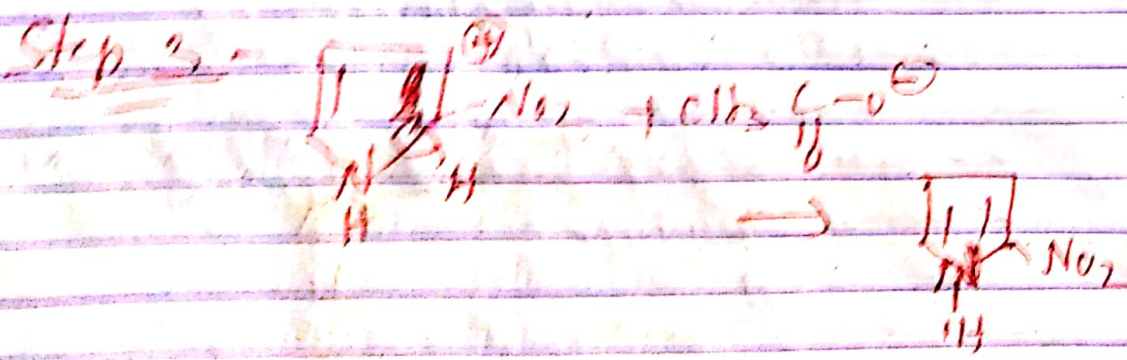 Step 3 -
⊕
-NO2 + CH3 C-O⊖
O
N H
H
→
N NO2
H